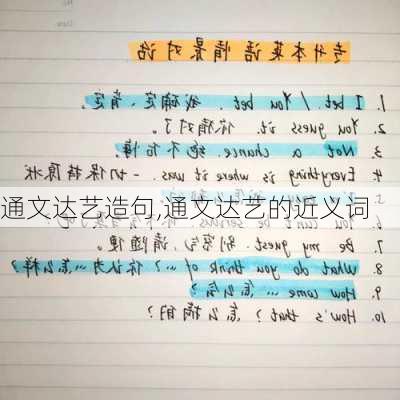 专升本英语情景对话
1. I bet. / You bet. 我确定、肯定。
2. You guess it. 你猜对了。
3. Not a chance. 绝不
4. Everything is where it was. 一切保持原状
通文达艺造句,通文达艺的近义词
7. Be my guest. 别客气,请随便。
8. What do you think of ...? 你认为...怎么样?
9. How come ... 怎么会?
10. How's that? 怎么搞的?